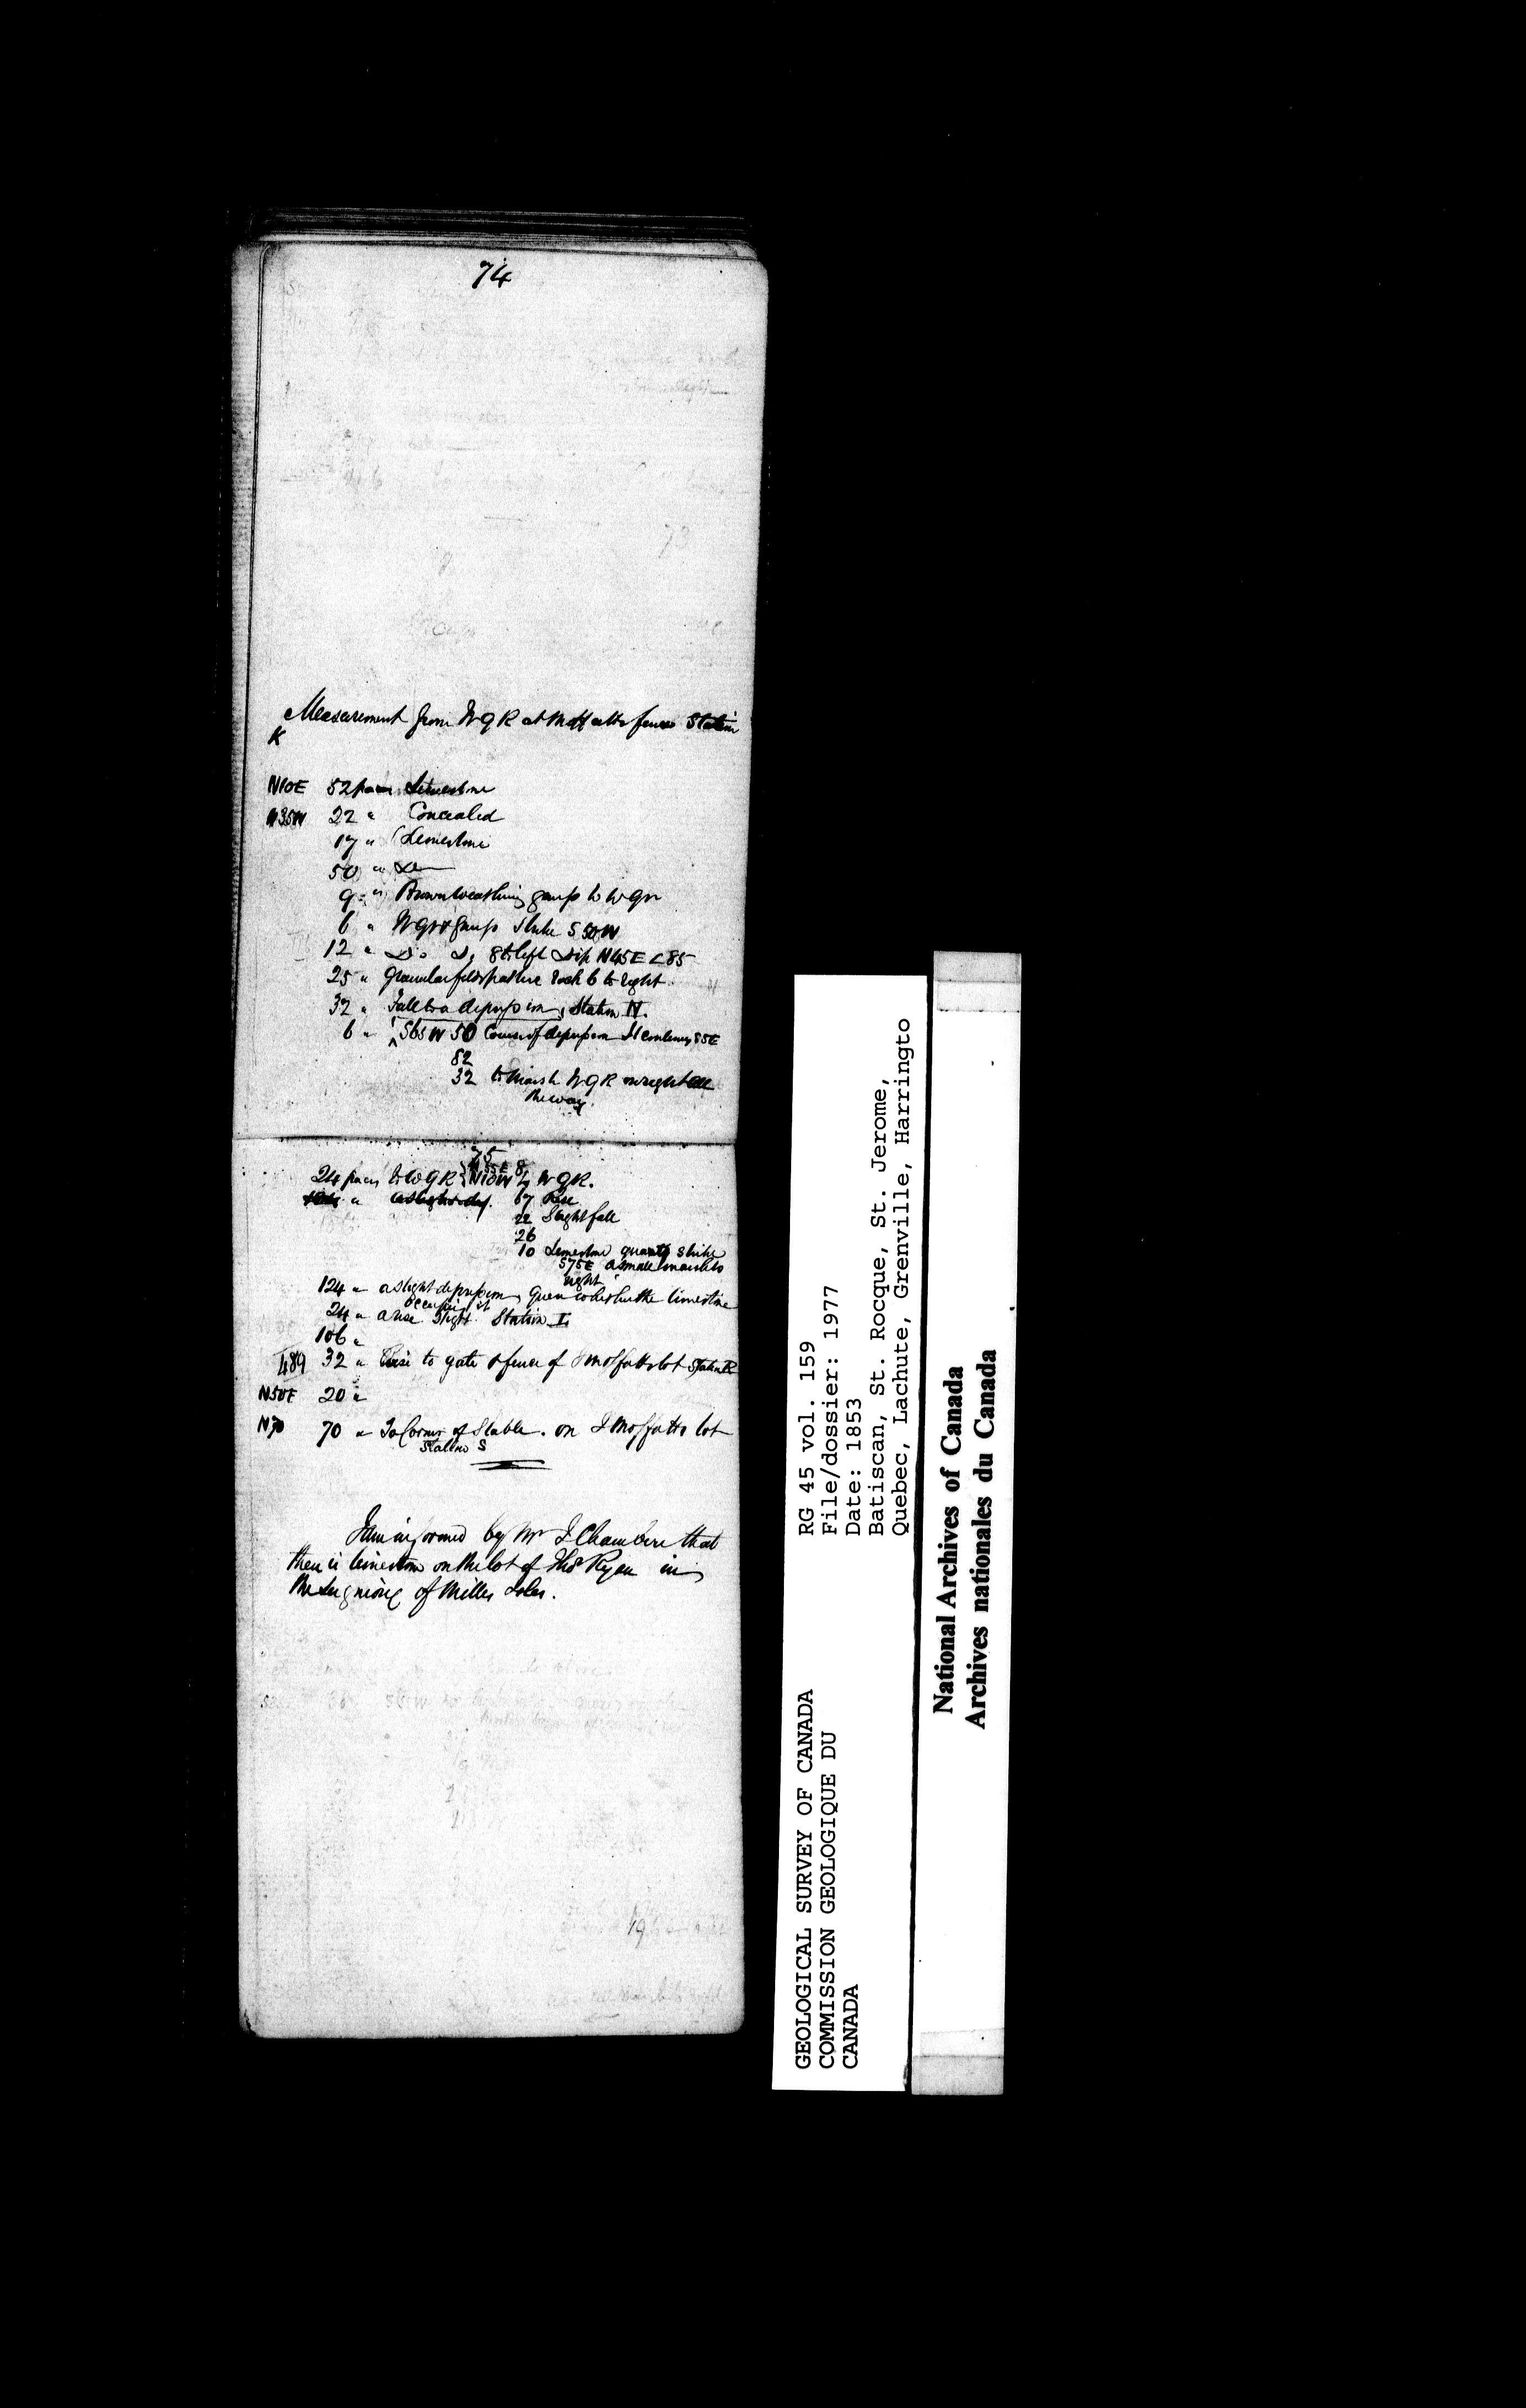 74
Measurement from W G R at Moffatts fence Station
K
N10E 52 paces Limestone
N35W 22 " Concealed
17 " Limestone
50 " Do
9 " Brown weathering gneiss to W gr
6 " W gr & gneiss strike S50W
12 " Do Do 8 to left Dip N45E < 85
25 " Granular feldspathic rock 6 to right
32 " Fall to a depression, Station N.
6 " S65W 50 Course of depression It continues S5E
82
32 to Marsh W G R on right all
the way
75
24 paces to W G R N55E 8
N10W 4 W G R.
" a slight dep. 67 Rise
22 Slight fall
26
10 Limestone quartz strike
S75E a small marsh to
right
124 " a slight depression, the limestone
occupies it
24 " a rise slight Station I.
106 "
489 32 " Rise to gate & fence of J Moffatts lot Station R
N50E 20 "
N70 70 " To Corner of Stable. on J Moffatts lot
Station S
I am informed by Mr J Chambers that
there is limestone on the lot of Thos Ryan in
the Seigniory of Milles Isles.
GEOLOGICAL SURVEY OF CANADA
COMMISSION GEOLOGIQUE DU
CANADA
RG 45 vol. 159
File/dossier: 1977
Date: 1853
Batiscan, St. Rocque, St. Jerome,
Quebec, Lachute, Grenville, Harringto
National Archives of Canada
Archives nationales du Canada